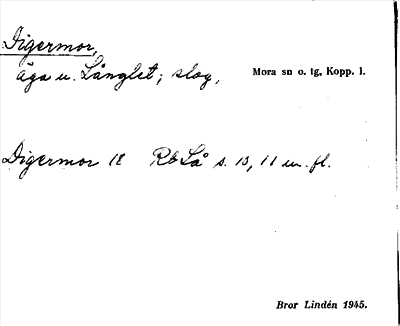 Digermor,
äga u. Långlet; slog,
Mora sn o. tg, Kopp. l.
Digermor 18 Rb Lå s. 13, 11 m. fl.
Bror Lindén 1945.